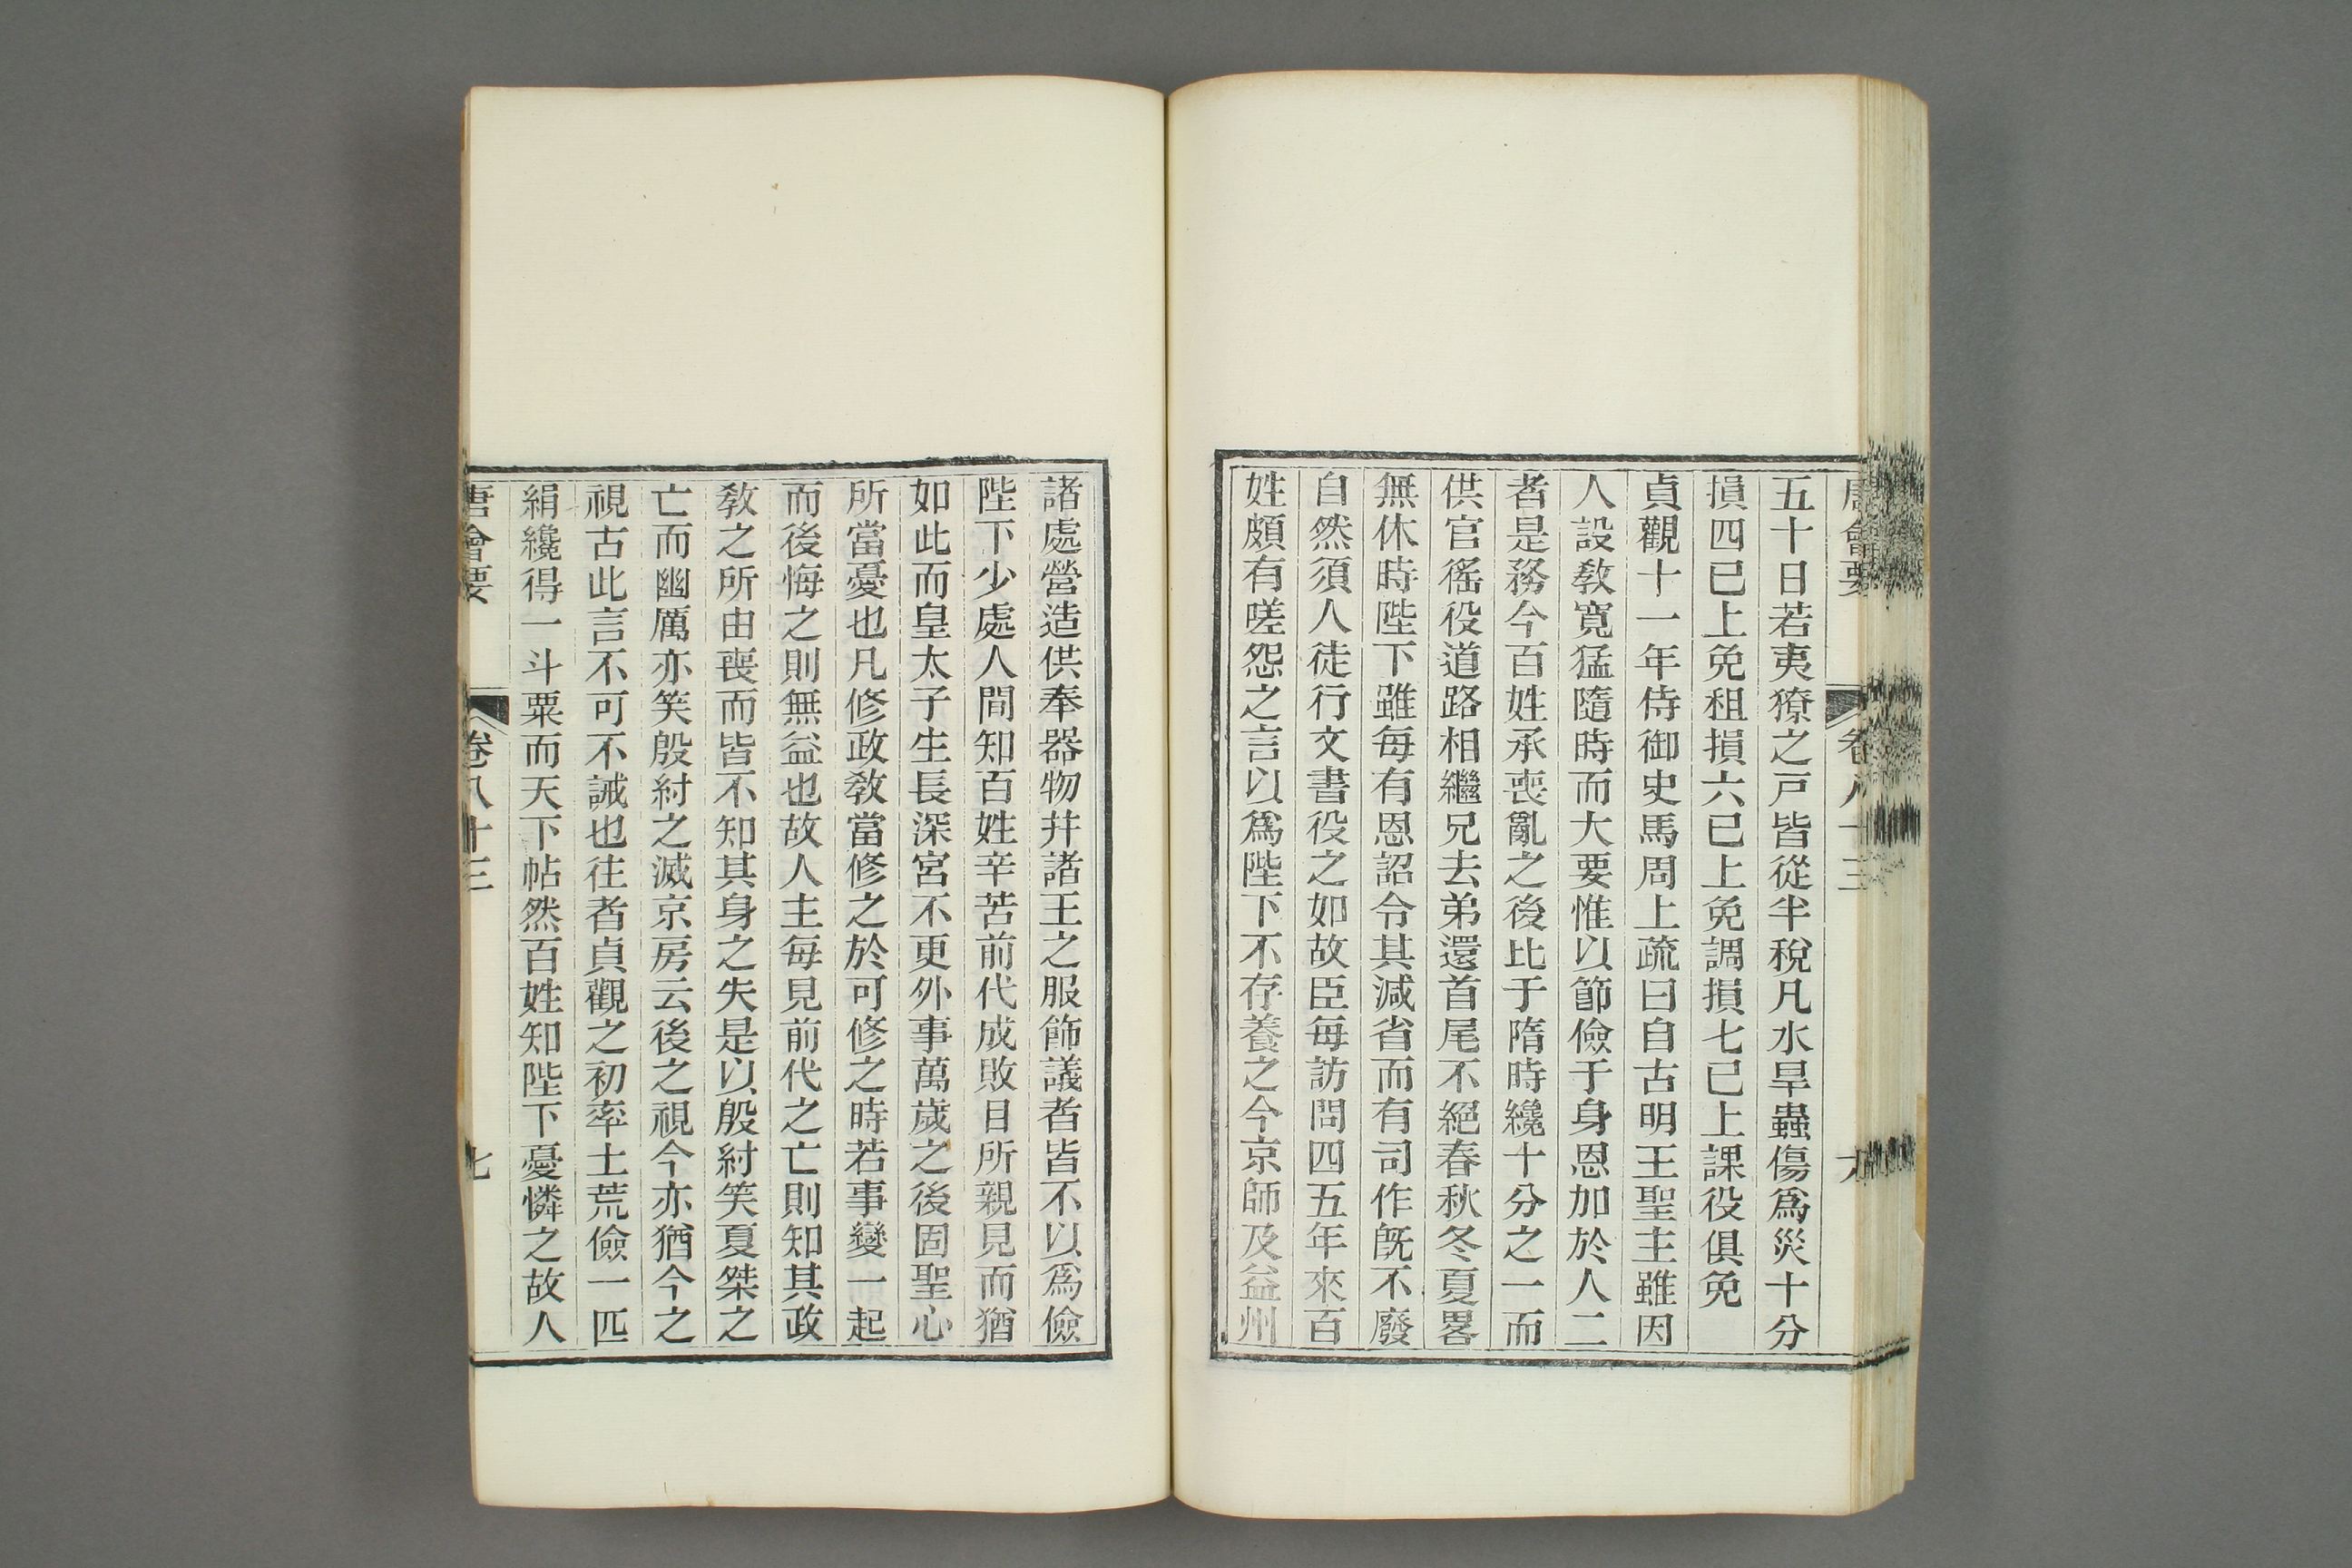 唐會要 卷八十三 六
五十日若夷獠之戸皆從半稅凡水旱蟲傷爲災十分
損四已上免租損六已上免調損七已上課役俱免
貞觀十一年侍御史馬周上疏曰自古明王聖主雖因
人設敎寬猛隨時而大要惟以節儉于身恩加於人二
者是務今百姓承喪亂之後比于隋時纔十分之一而
供官徭役道路相繼兄去弟還首尾不絕春秋冬夏畧
無休時陛下雖每有恩詔令其減省而有司作旣不廢
自然須人徒行文書役之如故臣每訪問四五年來百
姓頗有嗟怨之言以爲陛下不存養之今京師及益州
諸處營造供奉器物幷諸王之服飾議者皆不以爲儉
陛下少處人間知百姓辛苦前代成敗目所親見而猶
如此而皇太子生長深宮不更外事萬歲之後固聖心
所當憂也凡修政敎當修之於可修之時若事變一起
而後悔之則無益也故人主每見前代之亡則知其政
敎之所由喪而皆不知其身之失是以殷紂笑夏桀之
亡而幽厲亦笑殷紂之滅京房云後之視今亦猶今之
視古此言不可不誡也往者貞觀之初率土荒儉一匹
絹纔得一斗粟而天下帖然百姓知陛下憂憐之故人
唐會要 卷八十三 七